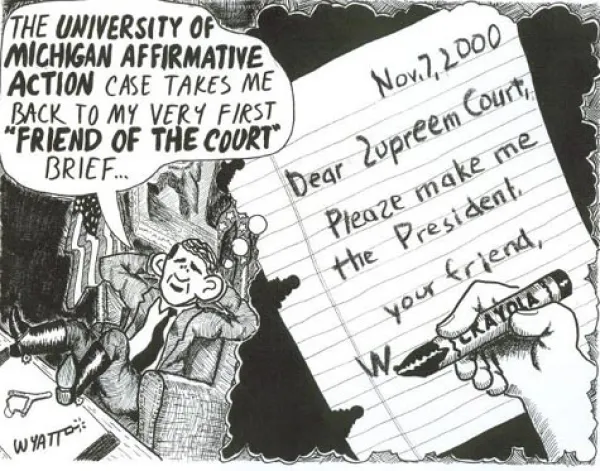 THE UNIVERSITY OF
MICHIGAN AFFIRMATIVE
ACTION CASE TAKES ME
BACK TO MY VERY FIRST
"FRIEND OF THE COURT"
BRIEF...
Nov. 7, 2000
Dear Zupreem Court,
Pleaze make me
the President.
your friend,
W
CRAYOLA
WYATT